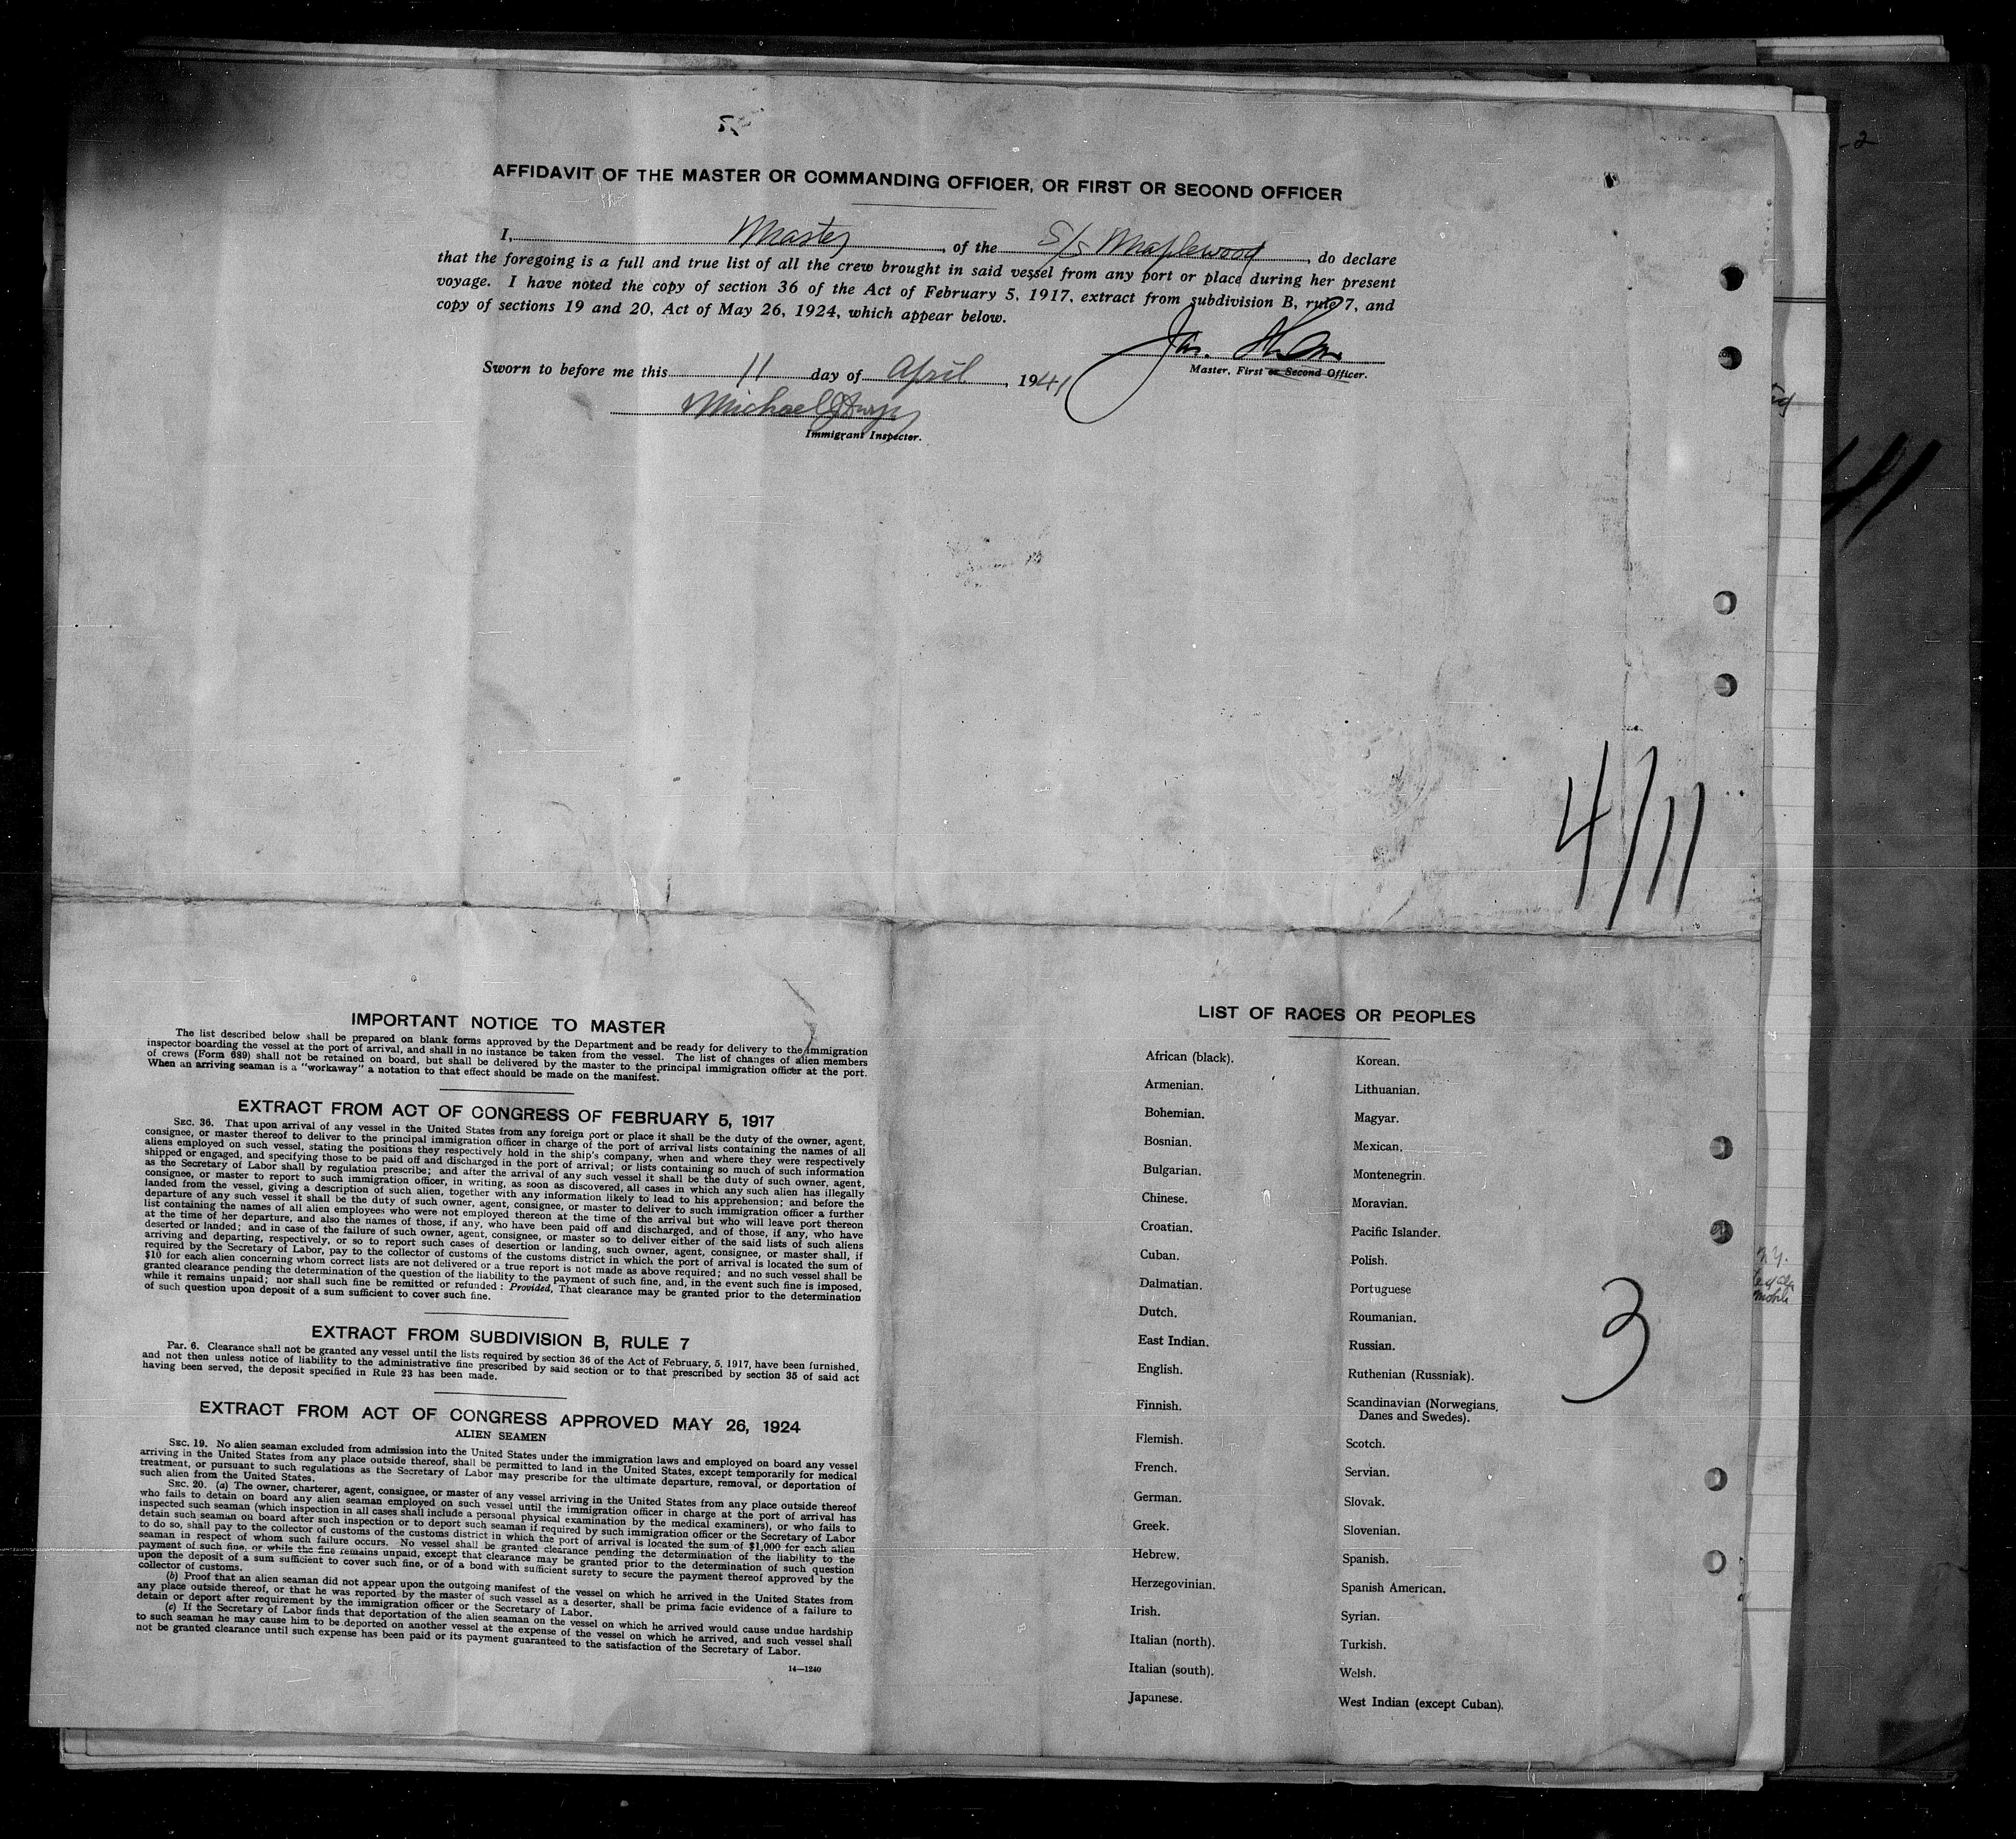 AFFIDAVIT OF THE MASTER OR COMMANDING OFFICER, OR FIRST OR SECOND OFFICER
I, Master, of the S/S Maplewood, do declare
that the foregoing is a full and true list of all the crew brought in said vessel from any port or place during her present
voyage. I have noted the copy of section 36 of the Act of February 5, 1917, extract from subdivision B, rule 7, and
copy of sections 19 and 20, Act of May 26, 1924, which appear below.
Jas.
Master, First or Second Officer.
Sworn to before me this 11 day of April, 1941
Michael
Immigrant Inspector.
4/11
IMPORTANT NOTICE TO MASTER
The list described below shall be prepared on blank forms approved by the Department and be ready for delivery to the immigration
inspector boarding the vessel at the port of arrival, and shall in no instance be taken from the vessel. The list of changes of alien members
of crews (Form 689) shall not be retained on board, but shall be delivered by the master to the principal immigration officer at the port.
When an arriving seaman is a "workaway" a notation to that effect should be made on the manifest.
EXTRACT FROM ACT OF CONGRESS OF FEBRUARY 5, 1917
SEC. 36. That upon arrival of any vessel in the United States from any foreign port or place it shall be the duty of the owner, agent,
consignee, or master thereof to deliver to the principal immigration officer in charge of the port of arrival lists containing the names of all
aliens employed on such vessel, stating the positions they respectively hold in the ship's company, when and where they were respectively
shipped or engaged, and specifying those to be paid off and discharged in the port of arrival; or lists containing so much of such information
as the Secretary of Labor shall by regulation prescribe; and after the arrival of any such vessel it shall be the duty of such owner, agent,
consignee, or master to report to such immigration officer, in writing, as soon as discovered, all cases in which any such alien has illegally
landed from the vessel, giving a description of such alien, together with any information likely to lead to his apprehension; and before the
departure of any such vessel it shall be the duty of such owner, agent, consignee, or master to deliver to such immigration officer a further
list containing the names of all alien employees who were not employed thereon at the time of the arrival but who will leave port thereon
at the time of her departure, and also the names of those, if any, who have been paid off and discharged, and of those, if any, who have
deserted or landed; and in case of the failure of such owner, agent, consignee, or master so to deliver either of the said lists of such aliens
arriving and departing, respectively, or so to report such cases of desertion or landing, such owner, agent, consignee, or master shall, if
required by the Secretary of Labor, pay to the collector of customs of the customs district in which the port of arrival is located the sum of
$10 for each alien concerning whom correct lists are not delivered or a true report is not made as above required; and no such vessel shall be
granted clearance pending the determination of the question of the liability to the payment of such fine, and, in the event such fine is imposed,
while it remains unpaid; nor shall such fine be remitted or refunded: Provided, That clearance may be granted prior to the determination
of such question upon deposit of a sum sufficient to cover such fine.
EXTRACT FROM SUBDIVISION B, RULE 7
Par. 6. Clearance shall not be granted any vessel until the lists required by section 36 of the Act of February, 5, 1917, have been furnished,
and not then unless notice of liability to the administrative fine prescribed by said section or to that prescribed by section 35 of said act
having been served, the deposit specified in Rule 23 has been made.
EXTRACT FROM ACT OF CONGRESS APPROVED MAY 26, 1924
ALIEN SEAMEN
SEC. 19. No alien seaman excluded from admission into the United States under the immigration laws and employed on board any vessel
arriving in the United States from any place outside thereof, shall be permitted to land in the United States, except temporarily for medical
treatment, or pursuant to such regulations as the Secretary of Labor may prescribe for the ultimate departure, removal, or deportation of
such alien from the United States.
SEC. 20. (a) The owner, charterer, agent, consignee, or master of any vessel arriving in the United States from any place outside thereof
who fails to detain on board any alien seaman employed on such vessel until the immigration officer in charge at the port of arrival has
inspected such seaman (which inspection in all cases shall include a personal physical examination by the medical examiners), or who fails to
detain such seaman on board after such inspection or to deport such seaman if required by such immigration officer or the Secretary of Labor
to do so, shall pay to the collector of customs of the customs district in which the port of arrival is located the sum of $1,000 for each alien
seaman in respect of whom such failure occurs. No vessel shall be granted clearance pending the determination of the liability to the
payment of such fine, or while the fine remains unpaid, except that clearance may be granted prior to the determination of such question
upon the deposit of a sum sufficient to cover such fine, or of a bond with sufficient surety to secure the payment thereof approved by the
collector of customs.
(b) Proof that an alien seaman did not appear upon the outgoing manifest of the vessel on which he arrived in the United States from
any place outside thereof, or that he was reported by the master of such vessel as a deserter, shall be prima facie evidence of a failure to
detain or deport after requirement by the immigration officer or the Secretary of Labor.
(c) If the Secretary of Labor finds that deportation of the alien seaman on the vessel on which he arrived would cause undue hardship
to such seaman he may cause him to be deported on another vessel at the expense of the vessel on which he arrived, and such vessel shall
not be granted clearance until such expense has been paid or its payment guaranteed to the satisfaction of the Secretary of Labor.
14—1240
LIST OF RACES OR PEOPLES
African (black).
Armenian.
Bohemian.
Bosnian.
Bulgarian.
Chinese.
Croatian.
Cuban.
Dalmatian.
Dutch.
East Indian.
English.
Finnish.
Flemish.
French.
German.
Greek.
Hebrew.
Herzegovinian.
Irish.
Italian (north).
Italian (south).
Japanese.
Korean.
Lithuanian.
Magyar.
Mexican.
Montenegrin.
Moravian.
Pacific Islander.
Polish.
Portuguese
Roumanian.
Russian.
Ruthenian (Russniak).
Scandinavian (Norwegians,
Danes and Swedes).
Scotch.
Servian.
Slovak.
Slovenian.
Spanish.
Spanish American.
Syrian.
Turkish.
Welsh.
West Indian (except Cuban).
3